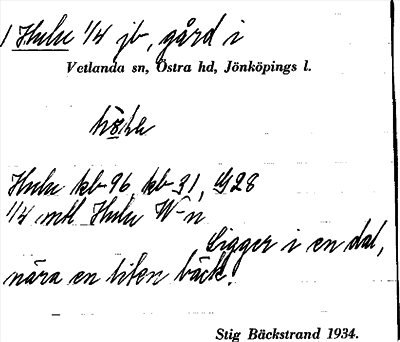 1 Hulu 1/4 jb, gård i
Vetlanda sn, Östra hd, Jönköpings l.
Hulu kb 96, kb 31, G28
1/4 mtl Hulu W-n
Ligger i en dal,
nära en liten bäck.
Stig Bäckstrand 1934.